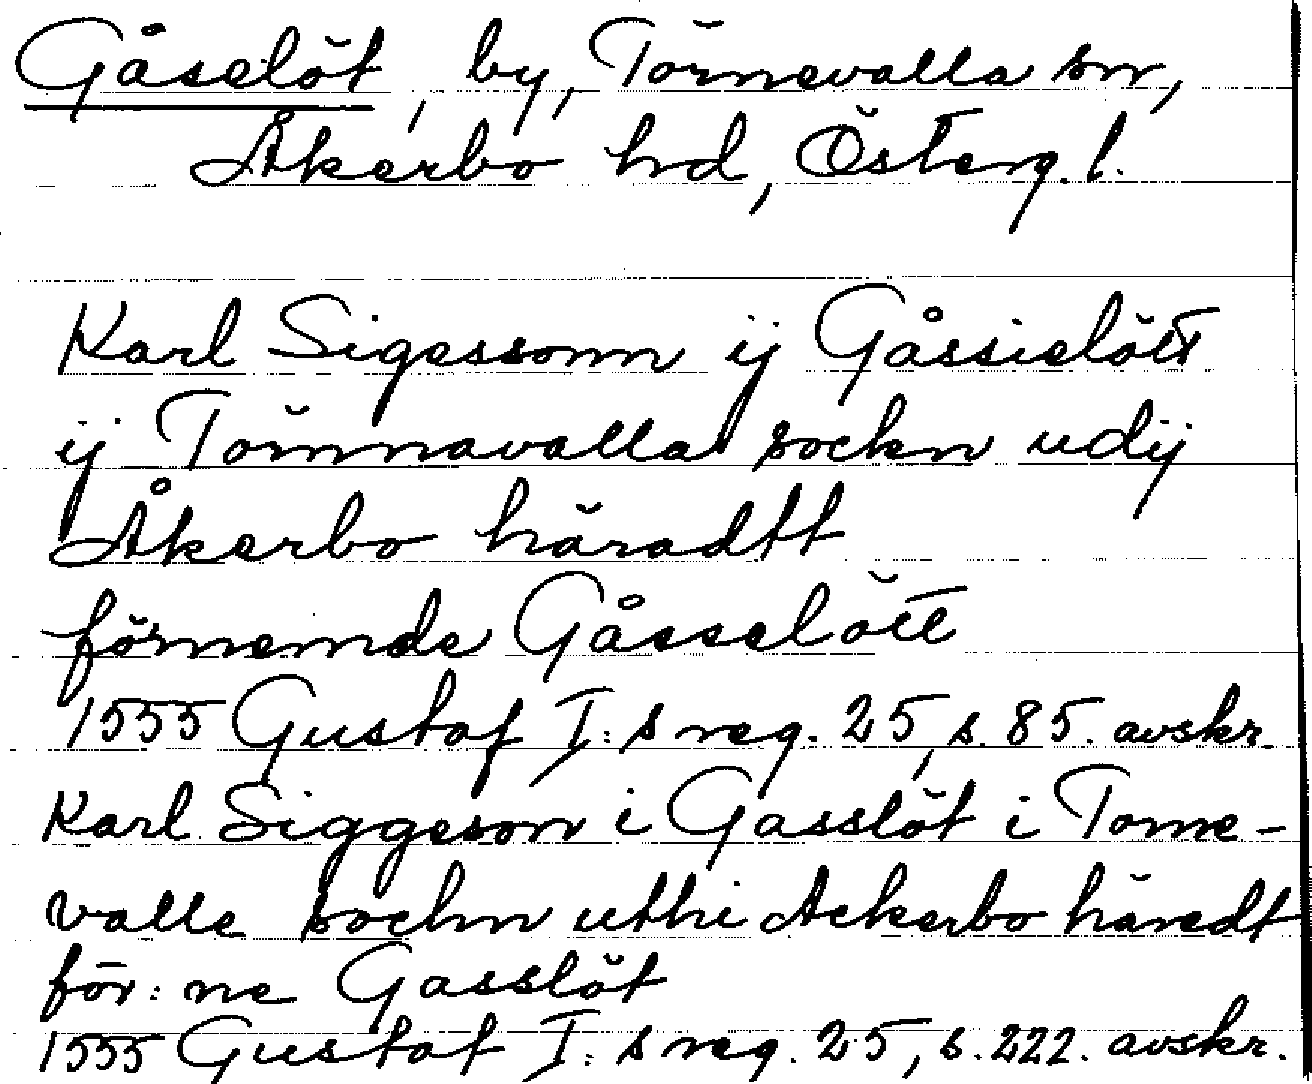 Gåselöt, by, Törnevalla sn,
Åkerbo hd, Österg. l.
Karl Sigessonn ij Gåssielött
ij Tömnavalla sockn udij
Åkerbo häradtt
förnemde Gåsselött
1555 Gustaf I:s reg. 25, s. 85. avskr.
Karl Siggeson i Gasslöt i Torne-
valle sochn uthi Ackerbo häredt
för:ne Gasslöt
1555 Gustaf I:s reg. 25, s. 222. avskr.